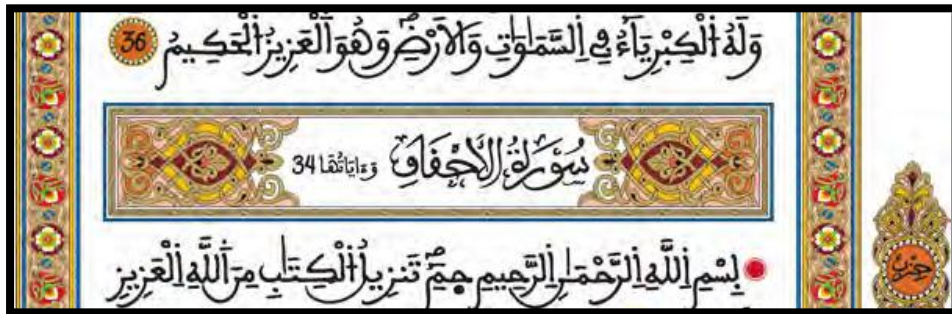 وَلَهُ اُ۬لْكِبْرِيَآءُ فِے اِ۬لسَّمَٰوَٰتِ وَالَارْضِۖ وَهُوَ اَ۬لْعَزِيزُ اُ۬لْحَكِيمُ 36
سُورَةُ الْأَحْقَافِ وَءَايَاتُهَا 34
بِسْمِ اِ۬للَّهِ اِ۬لرَّحْمَٰنِ اِ۬لرَّحِيمِ حٓمِٓۖ تَنزِيلُ اُ۬لْكِتَٰبِ مِنَ اَ۬للَّهِ اِ۬لْعَزِيزِ
حزب